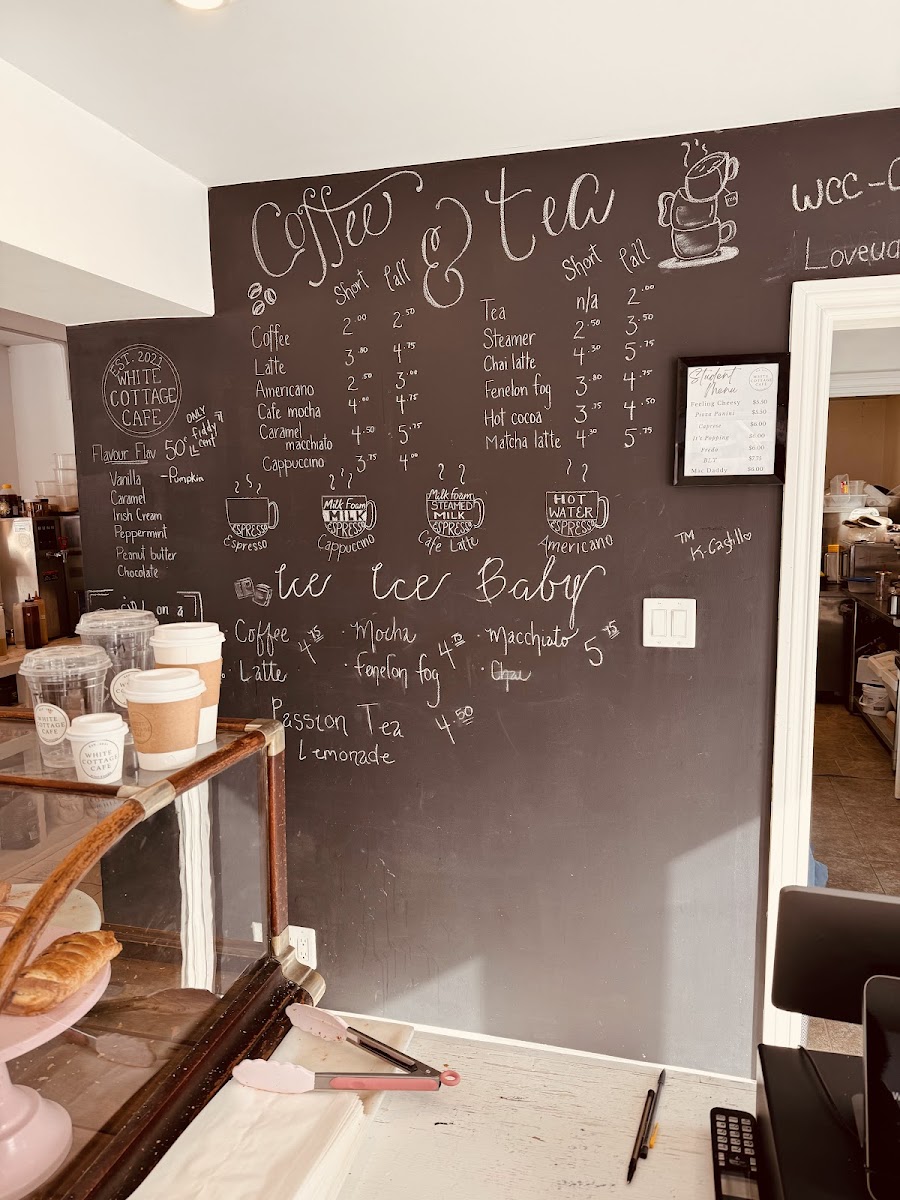 Coffee & tea
Short Tall
Coffee 2.00 2.50
Latte 3.80 4.75
Americano 2.50 3.00
Cafe mocha 4.00 4.75
Caramel macchiato 4.50 5.75
Cappuccino 3.75 4.00
Short Tall
Tea n/a 2.00
Steamer 2.50 3.50
Chai latte 4.30 5.75
Fenelon fog 3.80 4.75
Hot cocoa 3.75 4.50
Matcha latte 4.30 5.75
TEA
WCC-
Loveua
EST. 2021
WHITE
COTTAGE
CAFE
Flavour Flav 50¢ ONLY Fiddy cent
Vanilla - Pumpkin
Caramel
Irish Cream
Peppermint
Peanut butter
Chocolate
on a
ESPRESSO
Espresso
Milk Foam
MILK
ESPRESSO
Cappuccino
Milk foam
STEAMED
MILK
ESPRESSO
Cafe Latte
HOT
WATER
ESPRESSO
Americano
Student
Menu
Feeling Cheesy $5.50
Pizza Panini $5.50
Caprese $6.00
It's Popping $6.00
Fredo $6.00
BLT $7.75
Mac Daddy $6.00
TM
K. Castillo
Ice Ice Baby
Coffee
Latte
4.75
· Mocha
· Fenelon fog
4.75
· Macchiato
· Chai
5.25
Passion Tea
Lemonade
4.50
WHITE
COTTAGE
CAFE
WHITE
COTTAGE
CAFE